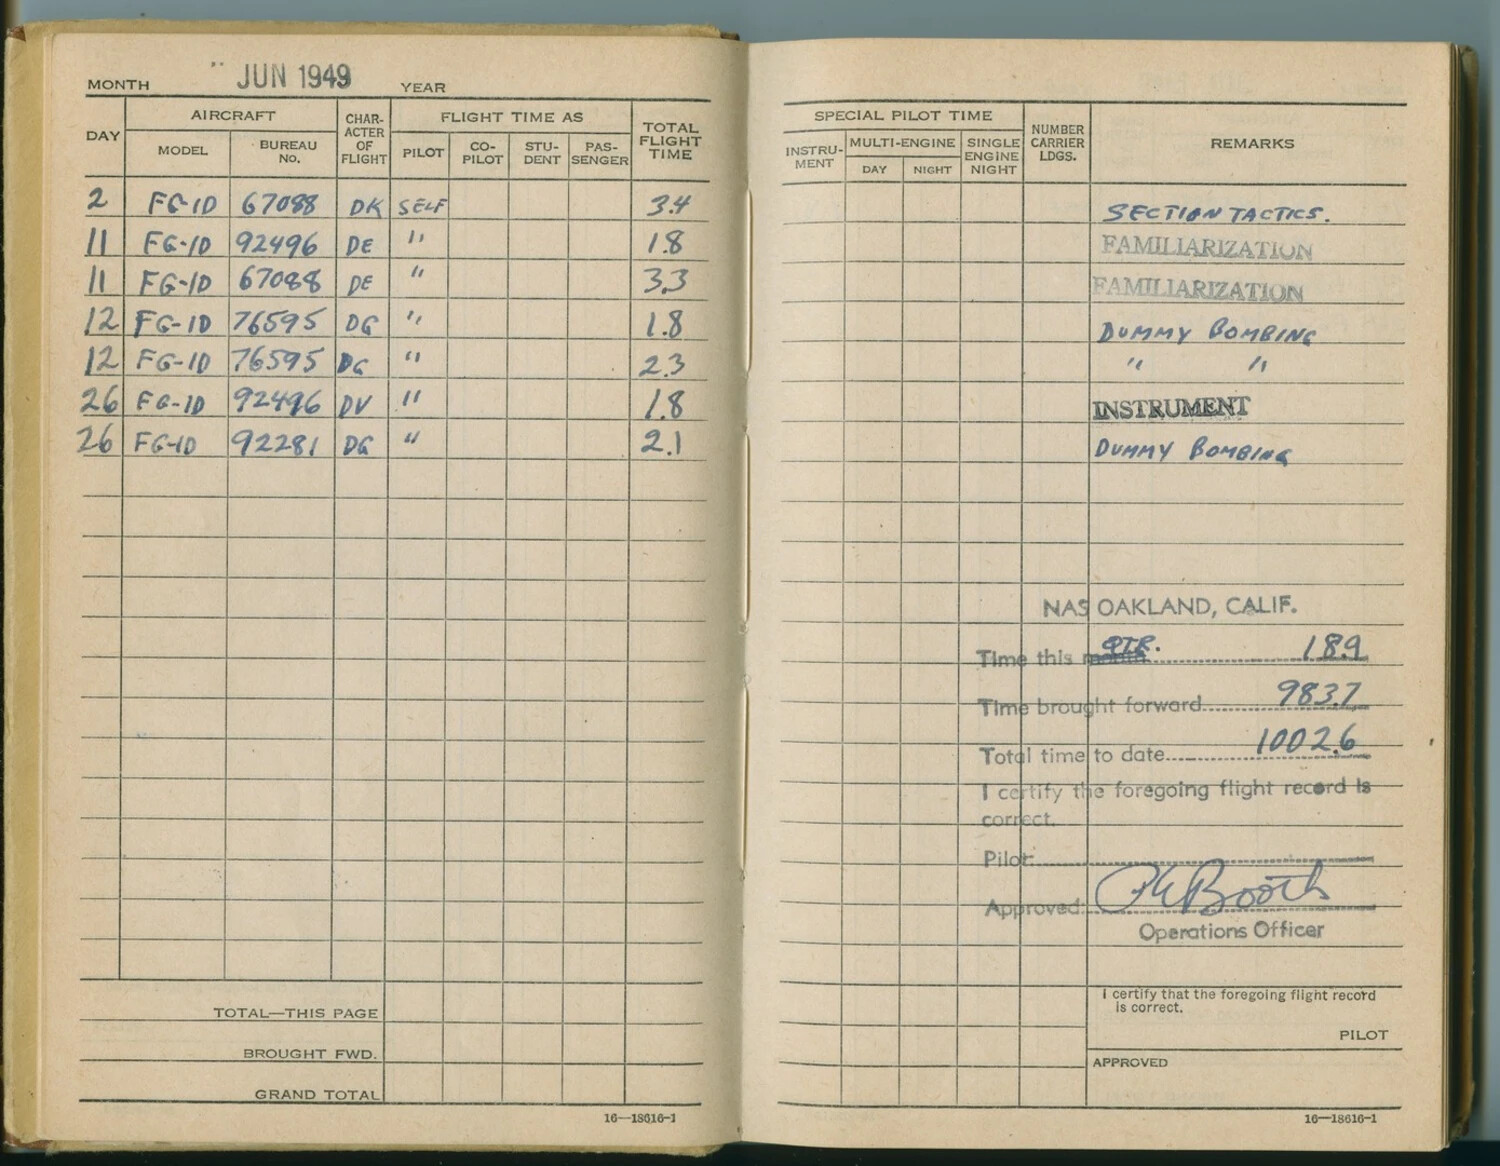 MONTH JUN 1949 YEAR
DAY AIRCRAFT CHAR-ACTER OF FLIGHT FLIGHT TIME AS TOTAL FLIGHT TIME
MODEL BUREAU No. PILOT CO-PILOT STU-DENT PAS-SENGER
2 FG-1D 67088 DK SELF 3.4
11 FG-1D 92496 DE " 1.8
11 FG-1D 67088 DE " 3.3
12 FG-1D 76595 DG " 1.8
12 FG-1D 76595 DG " 2.3
26 FG-1D 92496 DV " 1.8
26 FG-1D 92281 DG " 2.1
TOTAL—THIS PAGE
BROUGHT FWD.
GRAND TOTAL
16—18616-1
SPECIAL PILOT TIME NUMBER CARRIER LDGS. REMARKS
INSTRU-MENT MULTI-ENGINE SINGLE ENGINE NIGHT
DAY NIGHT
SECTION TACTICS.
FAMILIARIZATION
FAMILIARIZATION
DUMMY BOMBING
" "
INSTRUMENT
DUMMY BOMBING
NAS OAKLAND, CALIF.
Time this month QTR. 18.9
Time brought forward 983.7
Total time to date 1002.6
I certify the foregoing flight record is
correct.
Pilot:
Approved: Booth
Operations Officer
I certify that the foregoing flight record
is correct.
PILOT
APPROVED
16—18616-1